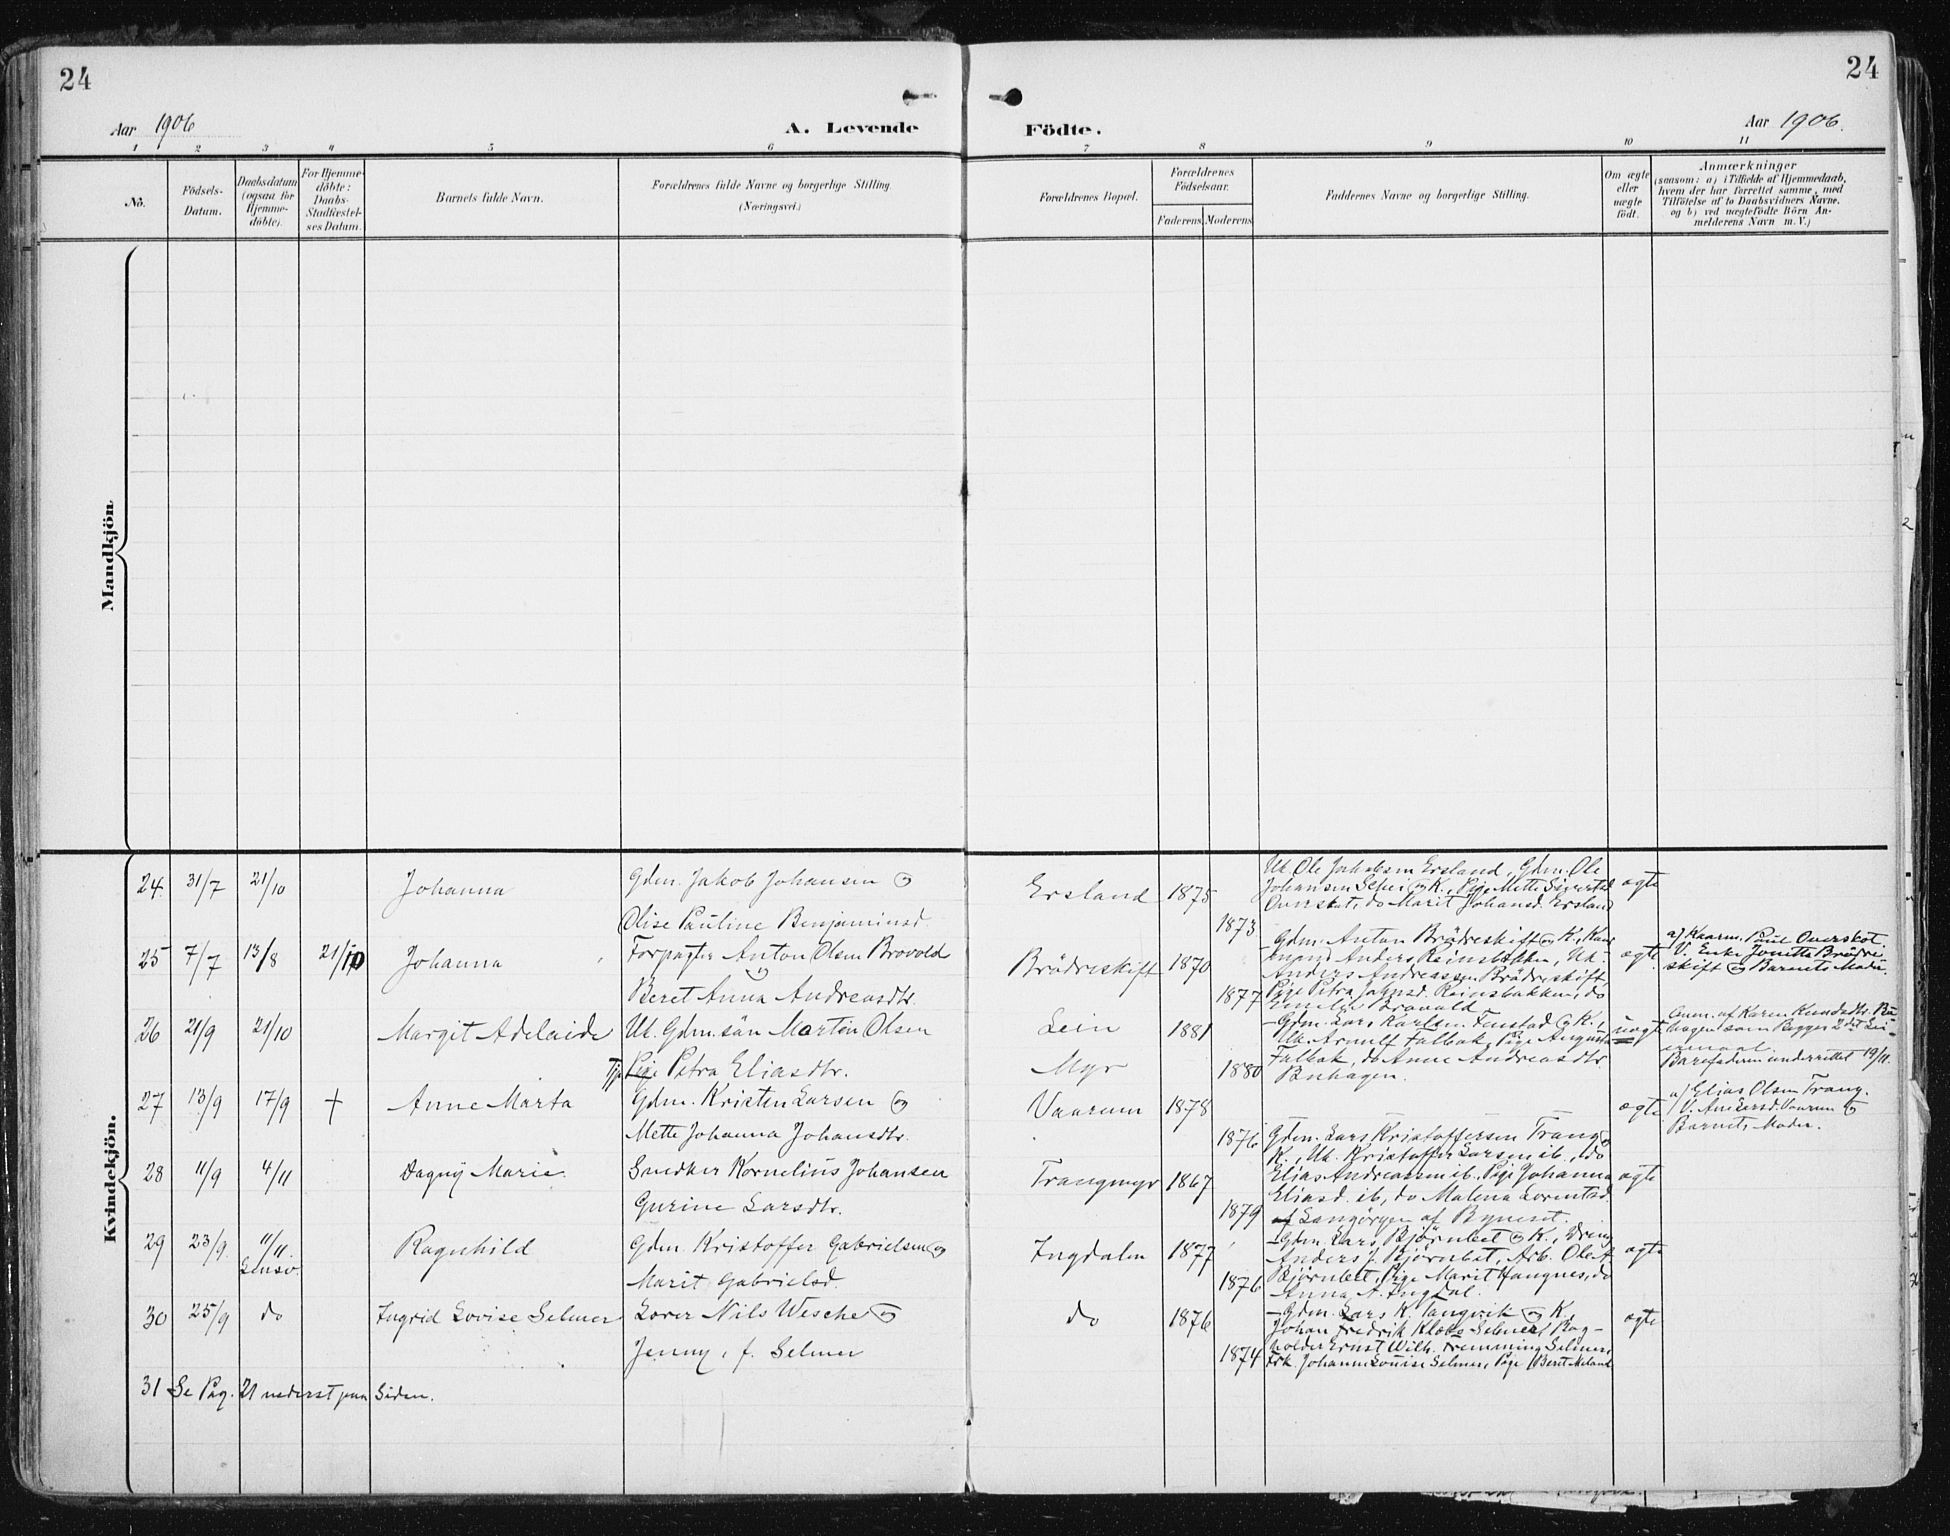 24
24
Aar 1906
A. Levende
Födte.
Aar 1906.
1 2 3 4 5 6 7 8 9 10 11
No.
Födsels-
Datum.
Daabsdatum
(ogsaa for
Hjemme-
döbte).
For Hjemme-
döbte:
Daabs-
Stadfæstel-
ses Datum.
Barnets fulde Navn.
Forældrenes fulde Navne og borgerlige Stilling.
(Næringsvei.)
Forældrenes Bopæl.
Forældrenes
Födselsaar.
Faderens Moderens
Faddernes Navne og borgerlige Stilling.
Om ægte
eller
uægte
födt.
Anmærkninger
(saasom: a) i Tilfælde af Hjemmedaab,
hvem der har forrettet samme, med
Tilföielse af to Daabsvidners Navne,
og b) ved uægtefödte Börn An-
melderens Navn m. V.)
Mandkjön.
Kvindekjön.
24. 31/7 21/10 Johanna
Gdm. Jakob Johansen og
Olise Pauline Benjaminsd.
Ersland 1875
1873
Uk. Ole Jakobsen Ersland, Gdm. Ole
Johansen Selnei og K., Pige Mette Sivertsd.
Overskot, do Marit Johansd. Ersland
ægte
25 7/7 13/8 21/10 Johanna
Forpagter Anton Olsen Brovold
Beret Anna Andreasdtr.
Brödreskift 1870
1877
Gdm. Anton Brödreskift og K.,
Anders Reinsbakken, Uk.
Anders Andreassen Brödreskift,
Pige Petra Johnsd. Reinsbakken, do
Emelie Brovold
ægte
a) Kaarm. Paul Overskot.
V. Enke Jonetta Brödre-
skift og Barnets Moder.
26 21/9 21/10 Margit Adelaide
Uk. Gdm.sön Martin Olsen
Tj. Pige Petra Eliasdtr.
Lein 1881
Myr 1880
Gdm. Lars Karlsen Fenstad og K.,
Uk. Arnulf Falbak, Pige Augusta
Falbak, do Anne Andreasdtr.
uægte
Barnefaderen underrettet 19/11.
27 13/9 17/9 + Anne Marta
Gdm. Kristen Larsen og
Mette Johanna Johansdtr.
Vaarum 1878
1876
ægte
a) Elias Olsen Trang.
V. Ane Larsd. Vaarum og
Barnets Moder.
28 11/9 4/11 Dagny Marie
Snedker Kornelius Johansen
Gurine Larsdtr.
Trangmyr 1867
1879
Gdm. Lars Kristoffersen Trang og
K., Uk. Kristoffer Larsen ib., do
Elias Andreassen ib., Pige Johanna
Eliasd. ib, do Malena Lorentsd.
Langörgen af Byneset.
ægte
29 23/9. 11/11.
Ragnhild
Gdm. Kristoffer Gabrielsen og
Marit Gabrielsd.
Ingdalen 1877
1876
Gdm. Lars Bjørnbet og K., Dreng
Anders J. Bjørnbet, Arb. Ole A.
Bjørnbet, Pige Marit Haugnes, do
Anna A. Ingdal.
ægte
30 25/9 do Ingrid Lovise Selmer
Lærer Nils Wesche og
Jenny, f. Selmer
do 1876
1874
Gdm. Lars K. Tangvik og K.,
Johan Fredrik Klæbo Selmer, Bog-
holder Ernst Wilh. Fremming Selmer,
Frk. Johanne Louise Selmer, Pige Beret Meland
ægte
31 Se Pag. 21 nederst paa Siden.